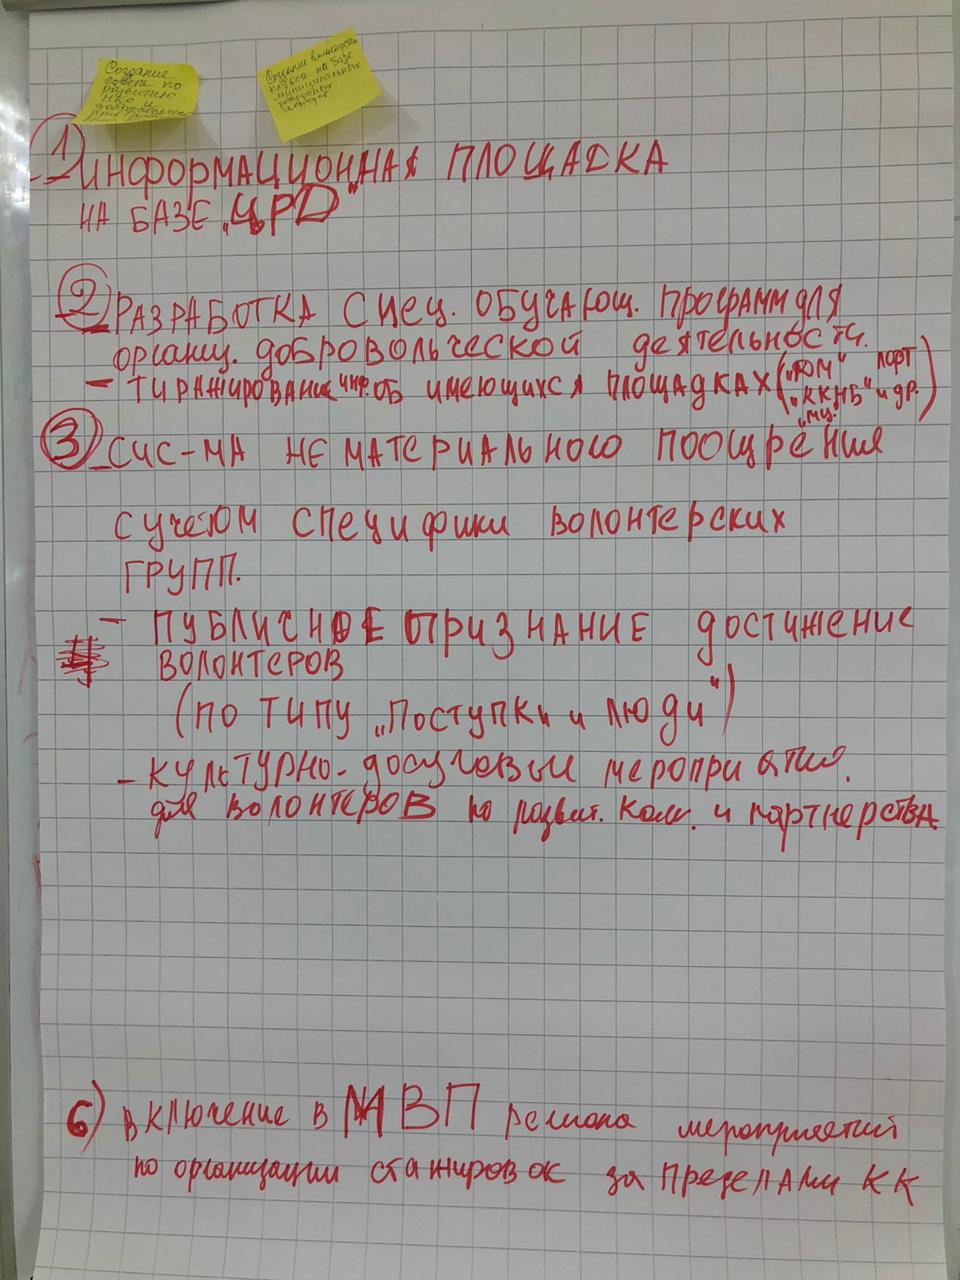 Создание
совета по
развитию
НКО и
добровольчества
Создание волонтёрских
клубов на базе
муниципальных
ресурсных
центров
1) ИНФОРМАЦИОННАЯ ПЛОЩАДКА
НА БАЗЕ „ЦРД"
2 РАЗРАБОТКА СПЕЦ. ОБУЧАЮЩ. ПРОГРАММ ДЛЯ
организ. добровольческой деятельности.
- ТИРАЖИРОВАНИЕ инф. ОБ имеющихся ПЛОЩАДКАХ („ЮМ" ПОРТ
„ККНБ" и др.)
„МЦ."
3 СИС-МА НЕМАТЕРИАЛЬНОГО ПООЩРЕНИЯ
С учетом СПЕЦИФИКИ ВОЛОНТЕРСКИХ
ГРУПП.
- ПУБЛИСНОЕ ПРИЗНАНИЕ достижение
ВОЛОНТЕРОВ
(ПО ТИПУ „Поступки и люди")
- КУЛЬТУРНО-досуговые мероприятия.
для ВОЛОНТЕРОВ по развит. Ком. и партнерства
6) Включение в МВП региона мероприятий
по организации стажировок за ПРЕДЕЛАМИ КК